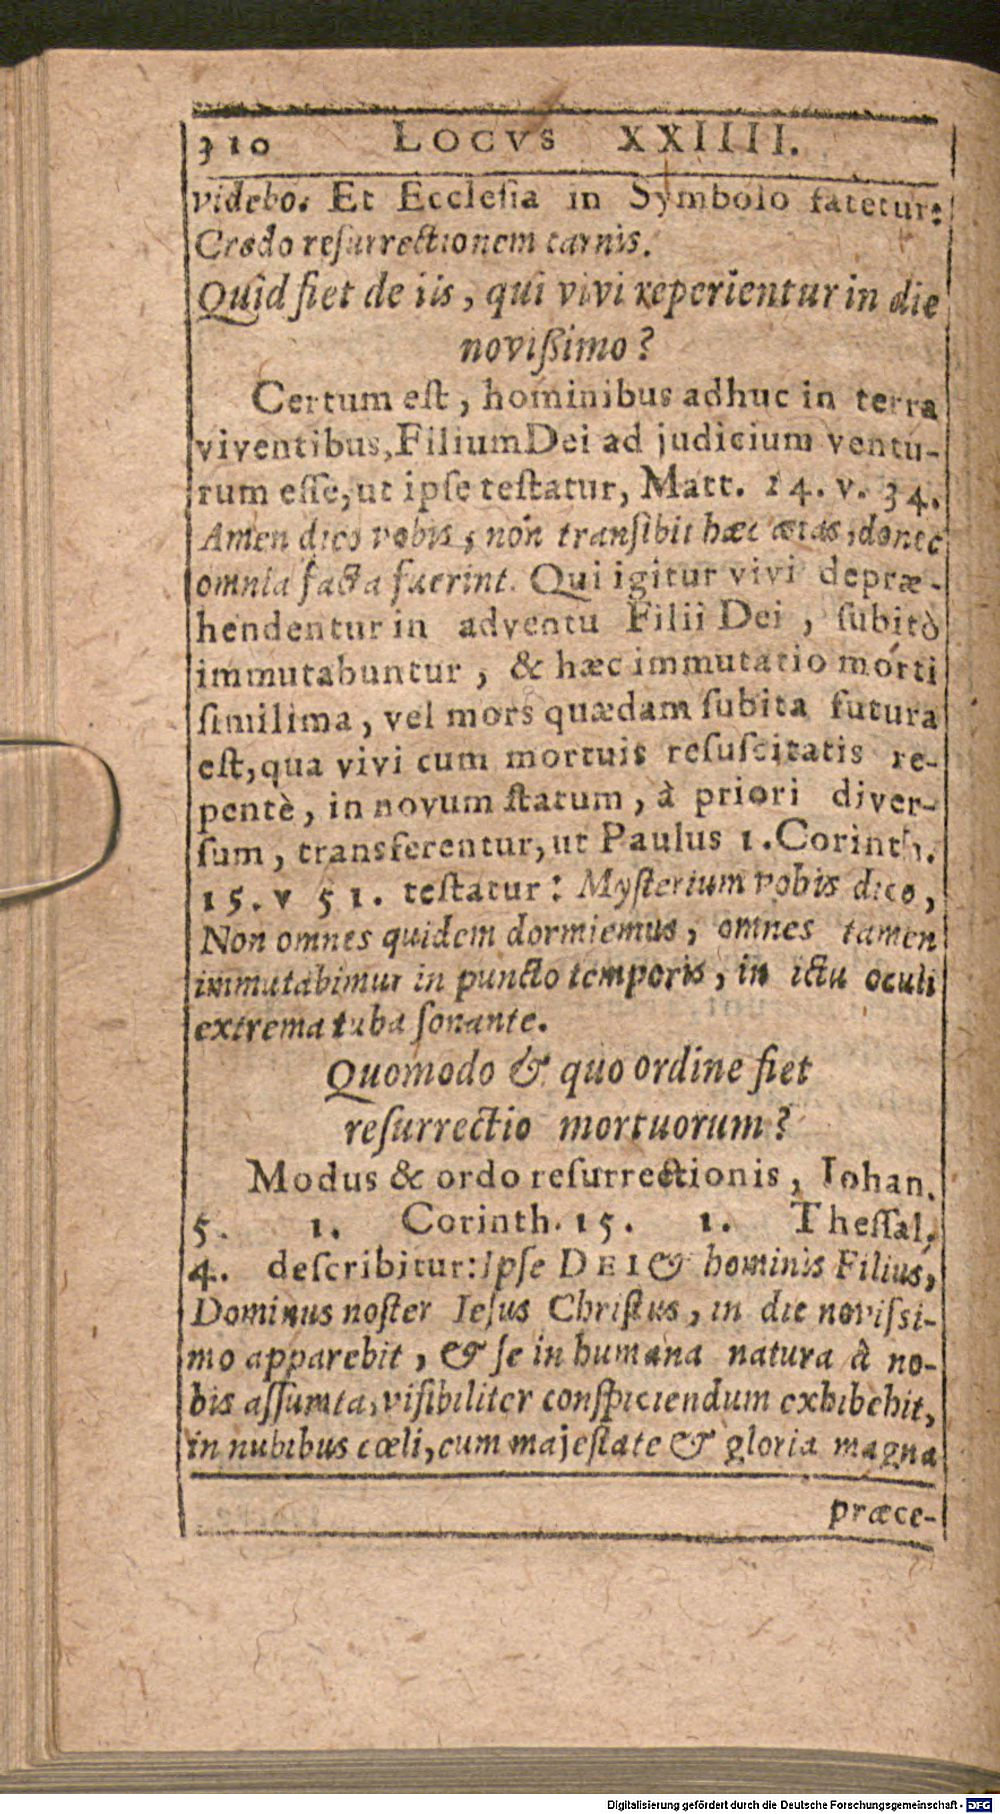 310 LOCVS XXIIII.
videbo. Et Ecclesia in Symbolo fatetur:
Credo resurrectionem carnis.
Quid fiet de iis, qui vivi reperientur in die
novißimo?
Certum est, hominibus adhuc in terra
viventibus, Filium Dei ad judicium ventu-
rum esse, ut ipse testatur, Matt. 24. v. 34.
Amen dico vobis, non transibit hæc ætas, donec
omnia facta fuerint. Qui igitur vivi depræ-
hendentur in adventu Filii Dei, subitò
immutabuntur, & hæc immutatio morti
similima, vel mors quædam subita futura
est, qua vivi cum mortuis resuscitatis re-
pentè, in novum statum, à priori diver-
sum, transferentur, ut Paulus 1. Corinth.
15. v 51. testatur: Mysterium vobis dico,
Non omnes quidem dormiemus, omnes tamen
immutabimur in puncto temporis, in ictu oculi
extrema tuba sonante.
Quomodo & quo ordine fiet
resurrectio mortuorum?
Modus & ordo resurrectionis, Iohan.
5. 1. Corinth. 15. 1. Thessal.
4. describitur: Ipse DEI & hominis Filius,
Dominus noster Iesus Christus, in die novissi-
mo apparebit, & se in humana natura à no-
bis assumta, visibiliter conspiciendum exhibebit,
in nubibus cœli, cum majestate & gloria magna
præce-
Digitalisierung gefördert durch die Deutsche Forschungsgemeinschaft - DFG